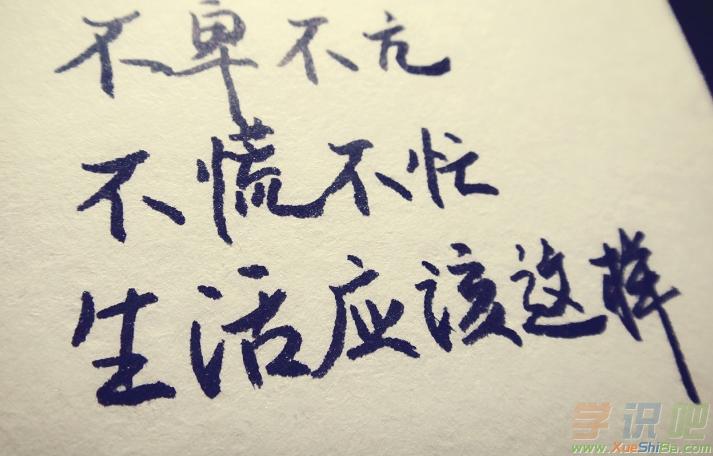 不卑不亢
不慌不忙
生活应该这样
学识吧
www.XueShiBa.com